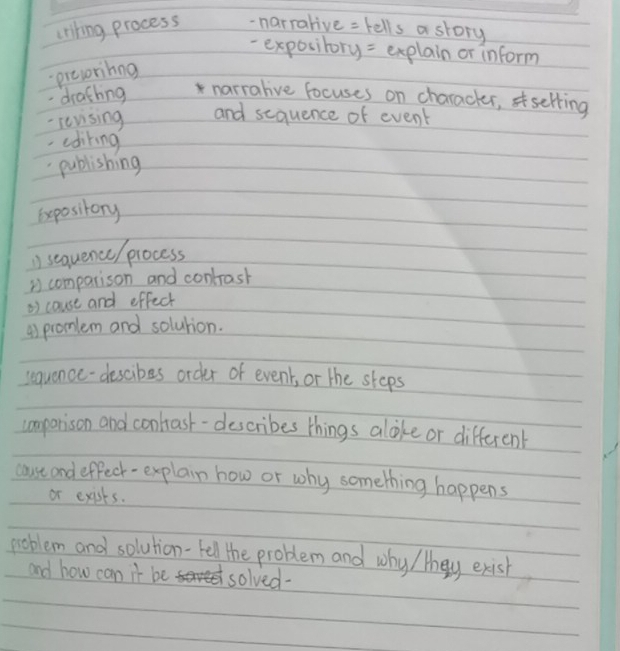 writing process
- narrative = tells a story
- expository = explain or inform
- prewriting
- drafting
- revising
- editing
- publishing
* narrative focuses on character, setting
and sequence of event
Expository
1) sequence/process
2) comparison and contrast
3) cause and effect
4) promlem and solution.
sequence - descibes order of event, or the steps
comparison and contrast - describes things alike or different
cause and effect - explain how or why something happens
or exists.
problem and solution - tell the problem and why/they exist
and how can it be solved -